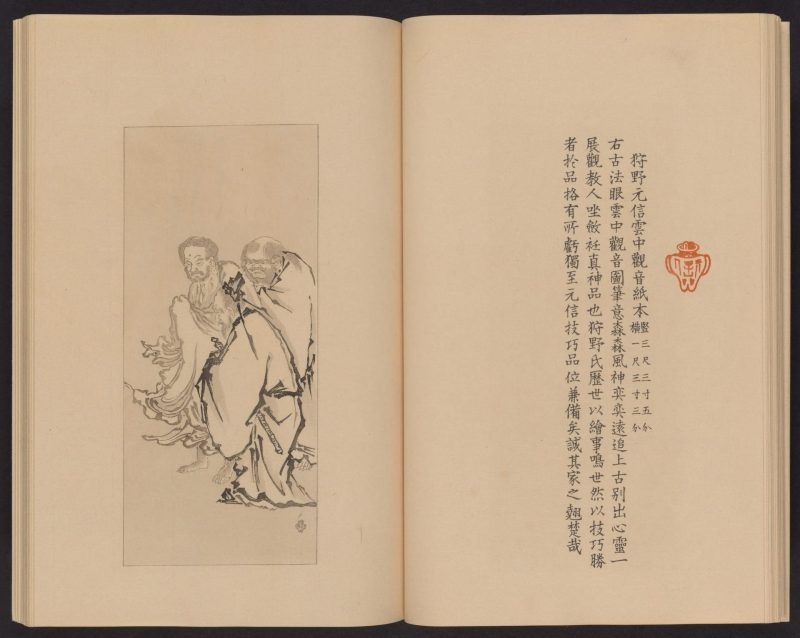 狩野元信雲中觀音紙本 豎三尺三寸五分 橫一尺三寸三分
右古法眼雲中觀音圖筆意森森風神奕奕遠追上古別出心靈一
展觀教人坐斂衽真神品也狩野氏歷世以繪事鳴世然以技巧勝
者於品格有所虧獨至元信技巧品位兼備矣誠其家之翹楚哉